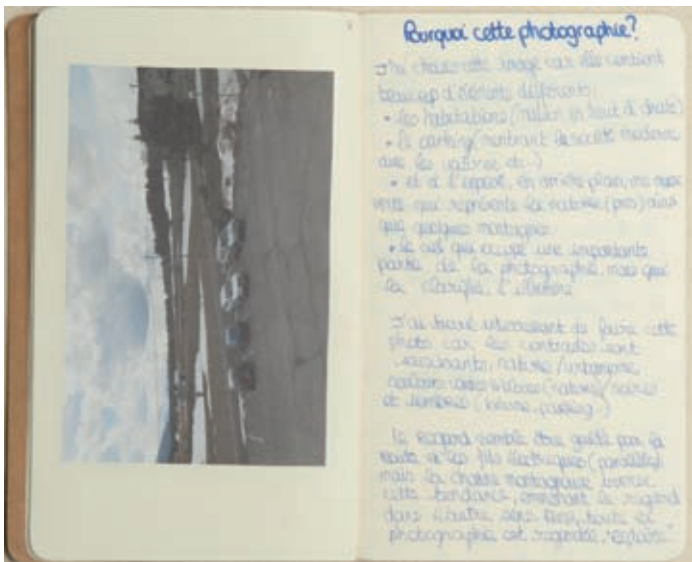 Pourquoi cette photographie?
J'ai choisi cette image car elle contient
beaucoup d'éléments différents:
• les habitations (maison en haut à droite)
• le parking (montrant la société moderne
avec les voitures etc...)
• et à l'opposé, en arrière plan, une
verte qui représente la nature (prés) ainsi
que quelques montagnes
• le ciel qui occupe une importante
partie de la photographie, mais qui
la clarifie, l'illumine
J'ai trouvé intéressant de faire cette
photo car les contrastes sont
saisissants, nature / urbanisme
couleurs (nature) / noires
et sombres (bitume, parking...)
le regard semble être guidé par la
route et les fils électriques (parallèles)
mais la chaîne montagneuse inverse
cette tendance, emmenant le regard
dans l'autre sens. Ainsi, toute la
photographie est regardée, "explorée"